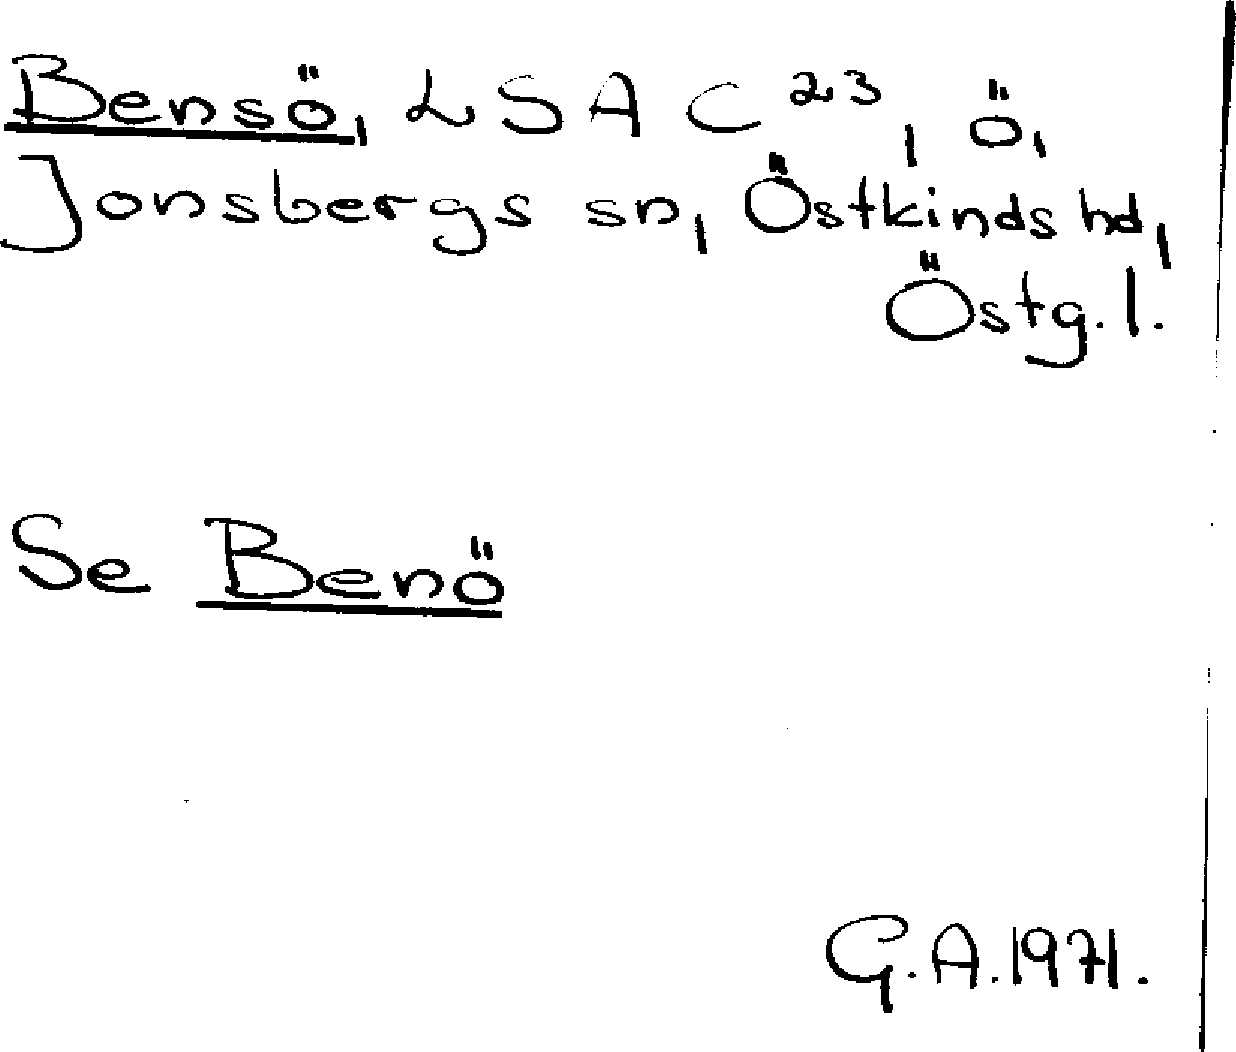 Bensö, LSA C²³, ö,
Jonsbergs sn, Östkinds hd,
Östg. l.
Se Benö
G.A. 1971.